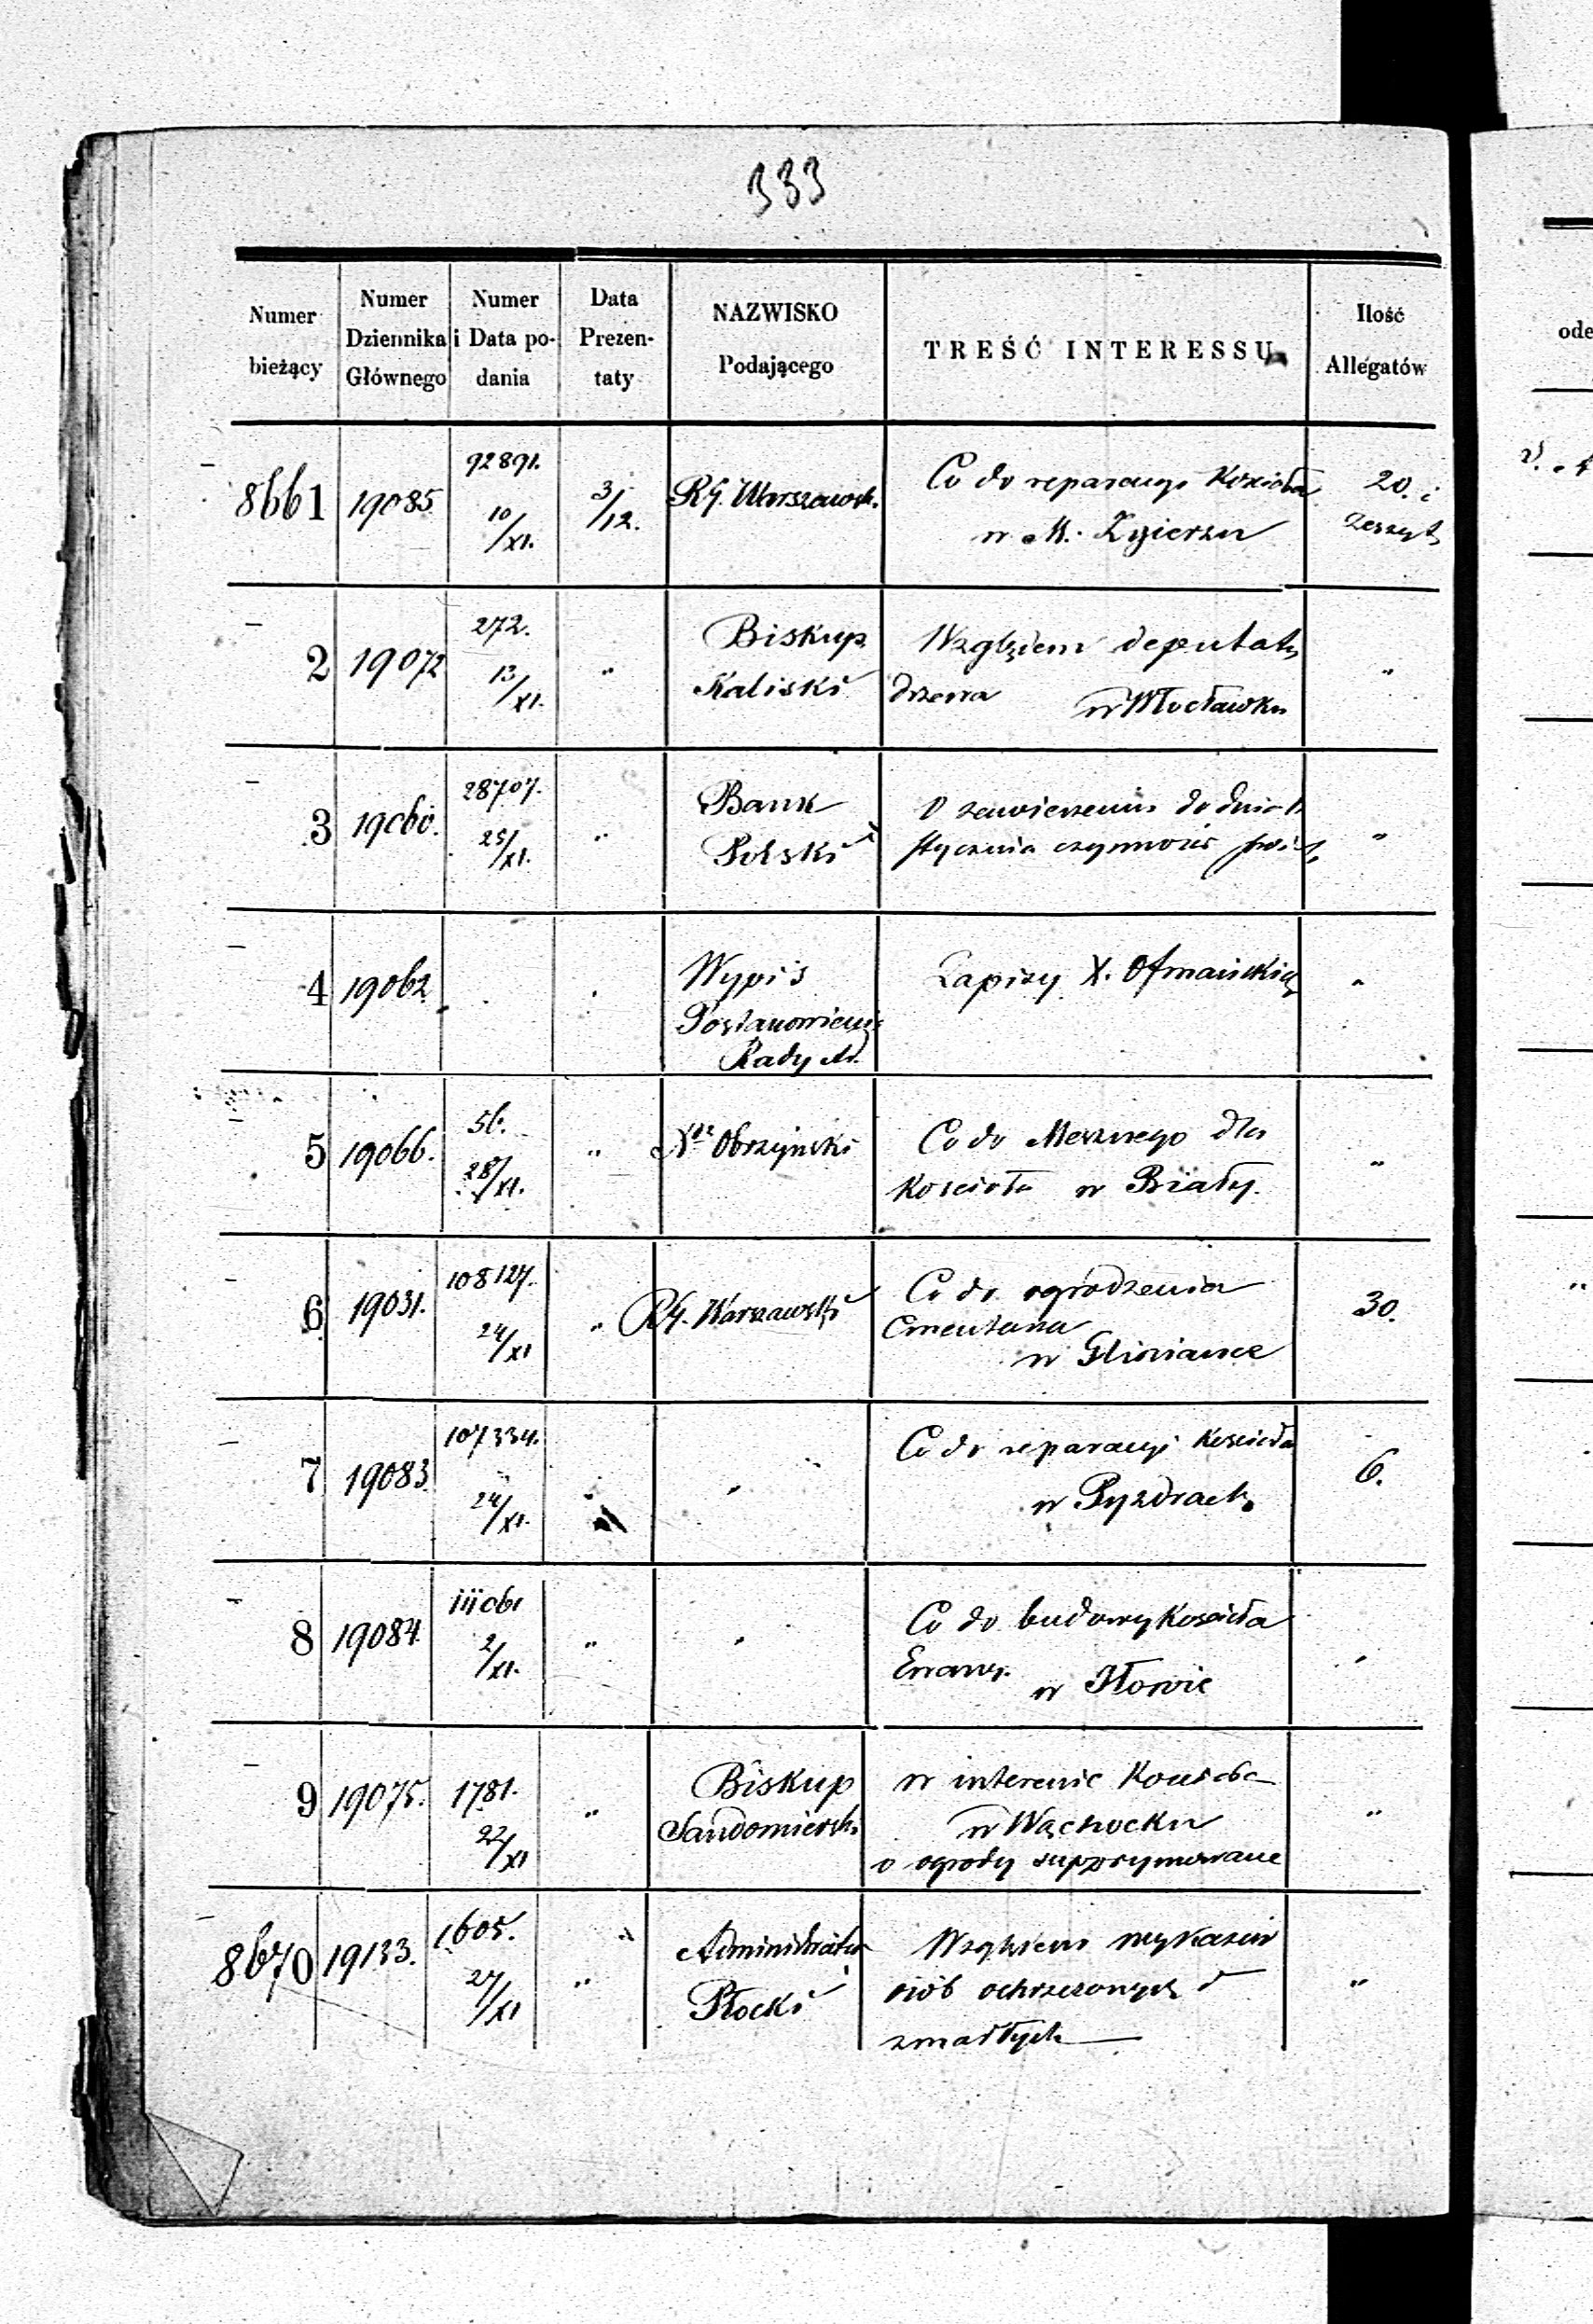 333
Numer bieżący
Numer Dziennika Głównego
Numer i Data podania
Data Prezentaty
NAZWISKO Podającego
TREŚĆ INTERESSU
Ilość Allegatów
8661 19085 92891. 10/XI. 3/12. R.G. Warszawsk. Co do reparacyi Kościoła 20. i
w M. Zgierzu Zeszyt
2 19072 272. 13/XI. " Biskup Względem deputatu "
Kaliski drzewa w Włocławku
3 28707. 25/XI. " Bank O zawieszeniu do dnia
Polski stycznia czynności "
4 19062 Wypis Zapisy X.
Postanowienia
Rady Ad.
5 19066. 56. 28/XI. " Co do Mesznego dla "
Kościoła w Biały.
6 19031. 108127. 24/XI " R.G. Warszawski Co do ogrodzenia 30.
Cmentarza
w Gliniance
7 19083 107334. 24/XI. " " Co do reparacyi Kościoła 6.
w Pyzdrach
8 19084. 2/XI. " " Co do budowy Kościoła "
Ewang. w Iłowie
9 19075. 1781. 22/XI " Biskup w interesie Kościoła "
Sandomierski w Wąchocku
o ogrody supprymowane
8670 19133. 1605. 27/XI " Administrator Względem wykazów
Płocki osób ochrzczonych "
zmarłych
ode